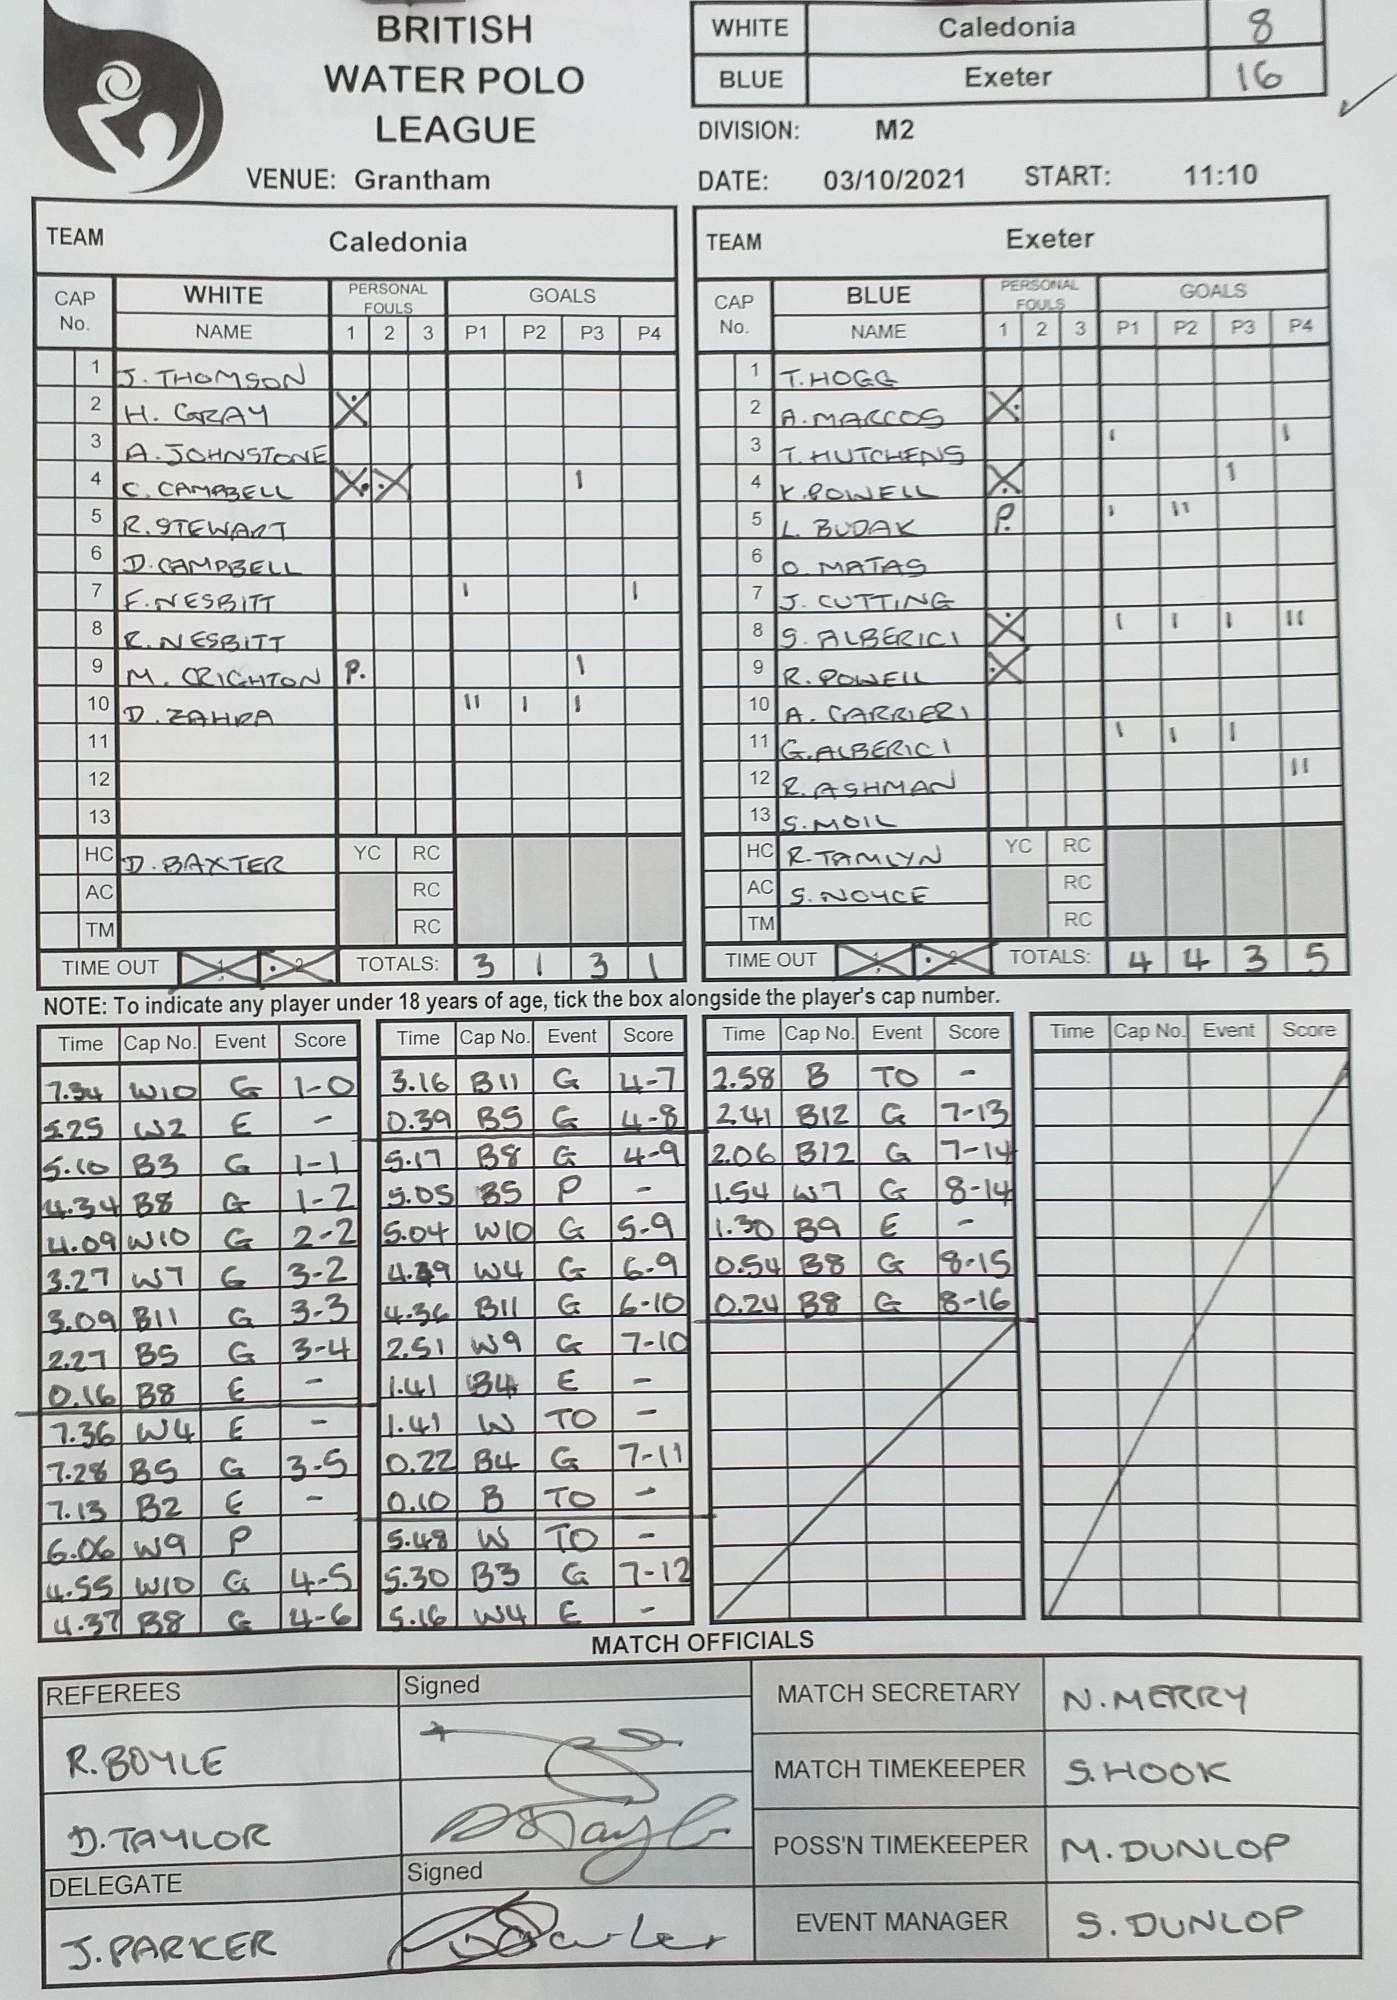 BRITISH
WATER POLO
LEAGUE
WHITE Caledonia 8
BLUE Exeter 16
DIVISION: M2
VENUE: Grantham DATE: 03/10/2021 START: 11:10
TEAM Caledonia
CAP No. WHITE NAME PERSONAL FOULS 1 2 3 GOALS P1 P2 P3 P4
1 J. THOMSON
2 H. GRAY X
3 A. JOHNSTONE
4 C. CAMPBELL X X I
5 R. STEWART
6 D. CAMPBELL
7 F. NESBITT I I
8 R. NESBITT
9 M. CRIGHTON P. I
10 D. ZAHRA II I I
11
12
13
HC D. BAXTER YC RC
AC RC
TM RC
TIME OUT 1 2 TOTALS: 3 1 3 1
TEAM Exeter
CAP No. BLUE NAME PERSONAL FOULS 1 2 3 GOALS P1 P2 P3 P4
1 T. HOGG
2 A. MARCOS X
3 T. HUTCHENS I I
4 K. POWELL X I
5 L. BUDAK P. I II
6 O. MATAS
7 J. CUTTING
8 S. ALBERICI X I I I II
9 R. POWELL X
10 A. CARRIERI
11 G. ALBERICI I I I
12 R. ASHMAN II
13 S. MOIL
HC R. TAMLYN YC RC
AC S. NOYCE RC
TM RC
TIME OUT 1 2 TOTALS: 4 4 3 5
NOTE: To indicate any player under 18 years of age, tick the box alongside the player's cap number.
Time Cap No. Event Score
7.34 W10 G 1-0
5.25 W2 E -
5.10 B3 G 1-1
4.34 B8 G 1-2
4.09 W10 G 2-2
3.27 W7 G 3-2
3.09 B11 G 3-3
2.27 B5 G 3-4
0.16 B8 E -
7.36 W4 E -
7.28 B5 G 3-5
7.13 B2 E -
6.06 W9 P
4.55 W10 G 4-5
4.37 B8 G 4-6
Time Cap No. Event Score
3.16 B11 G 4-7
0.39 B5 G 4-8
5.17 B8 G 4-9
5.05 B5 P -
5.04 W10 G 5-9
W4 G 6-9
4.36 B11 G 6-10
2.51 W9 G 7-10
1.41 B4 E -
1.41 W TO -
0.22 B4 G 7-11
0.10 B TO -
5.48 W TO -
5.30 B3 G 7-12
5.16 W4 E -
Time Cap No. Event Score
2.58 B TO -
2.41 B12 G 7-13
2.06 B12 G 7-14
1.54 W7 G 8-14
1.30 B9 E -
0.54 B8 G 8-15
0.24 B8 G 8-16
Time Cap No. Event Score
MATCH OFFICIALS
REFEREES Signed
R. BOYLE
D. TAYLOR D Taylor
DELEGATE Signed
J. PARKER Parker
MATCH SECRETARY N. MERRY
MATCH TIMEKEEPER S. HOOK
POSS'N TIMEKEEPER M. DUNLOP
EVENT MANAGER S. DUNLOP